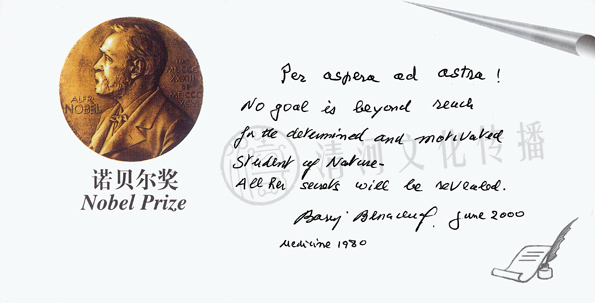 ALFR.
NOBEL
诺贝尔奖
Nobel Prize
Per aspera ad astra!
No goal is beyond reach
for the determined and motivated
Student of Nature-
All her secrets will be revealed.
Baruj Benacerraf, June 2000
Medicine 1980
清河文化传播